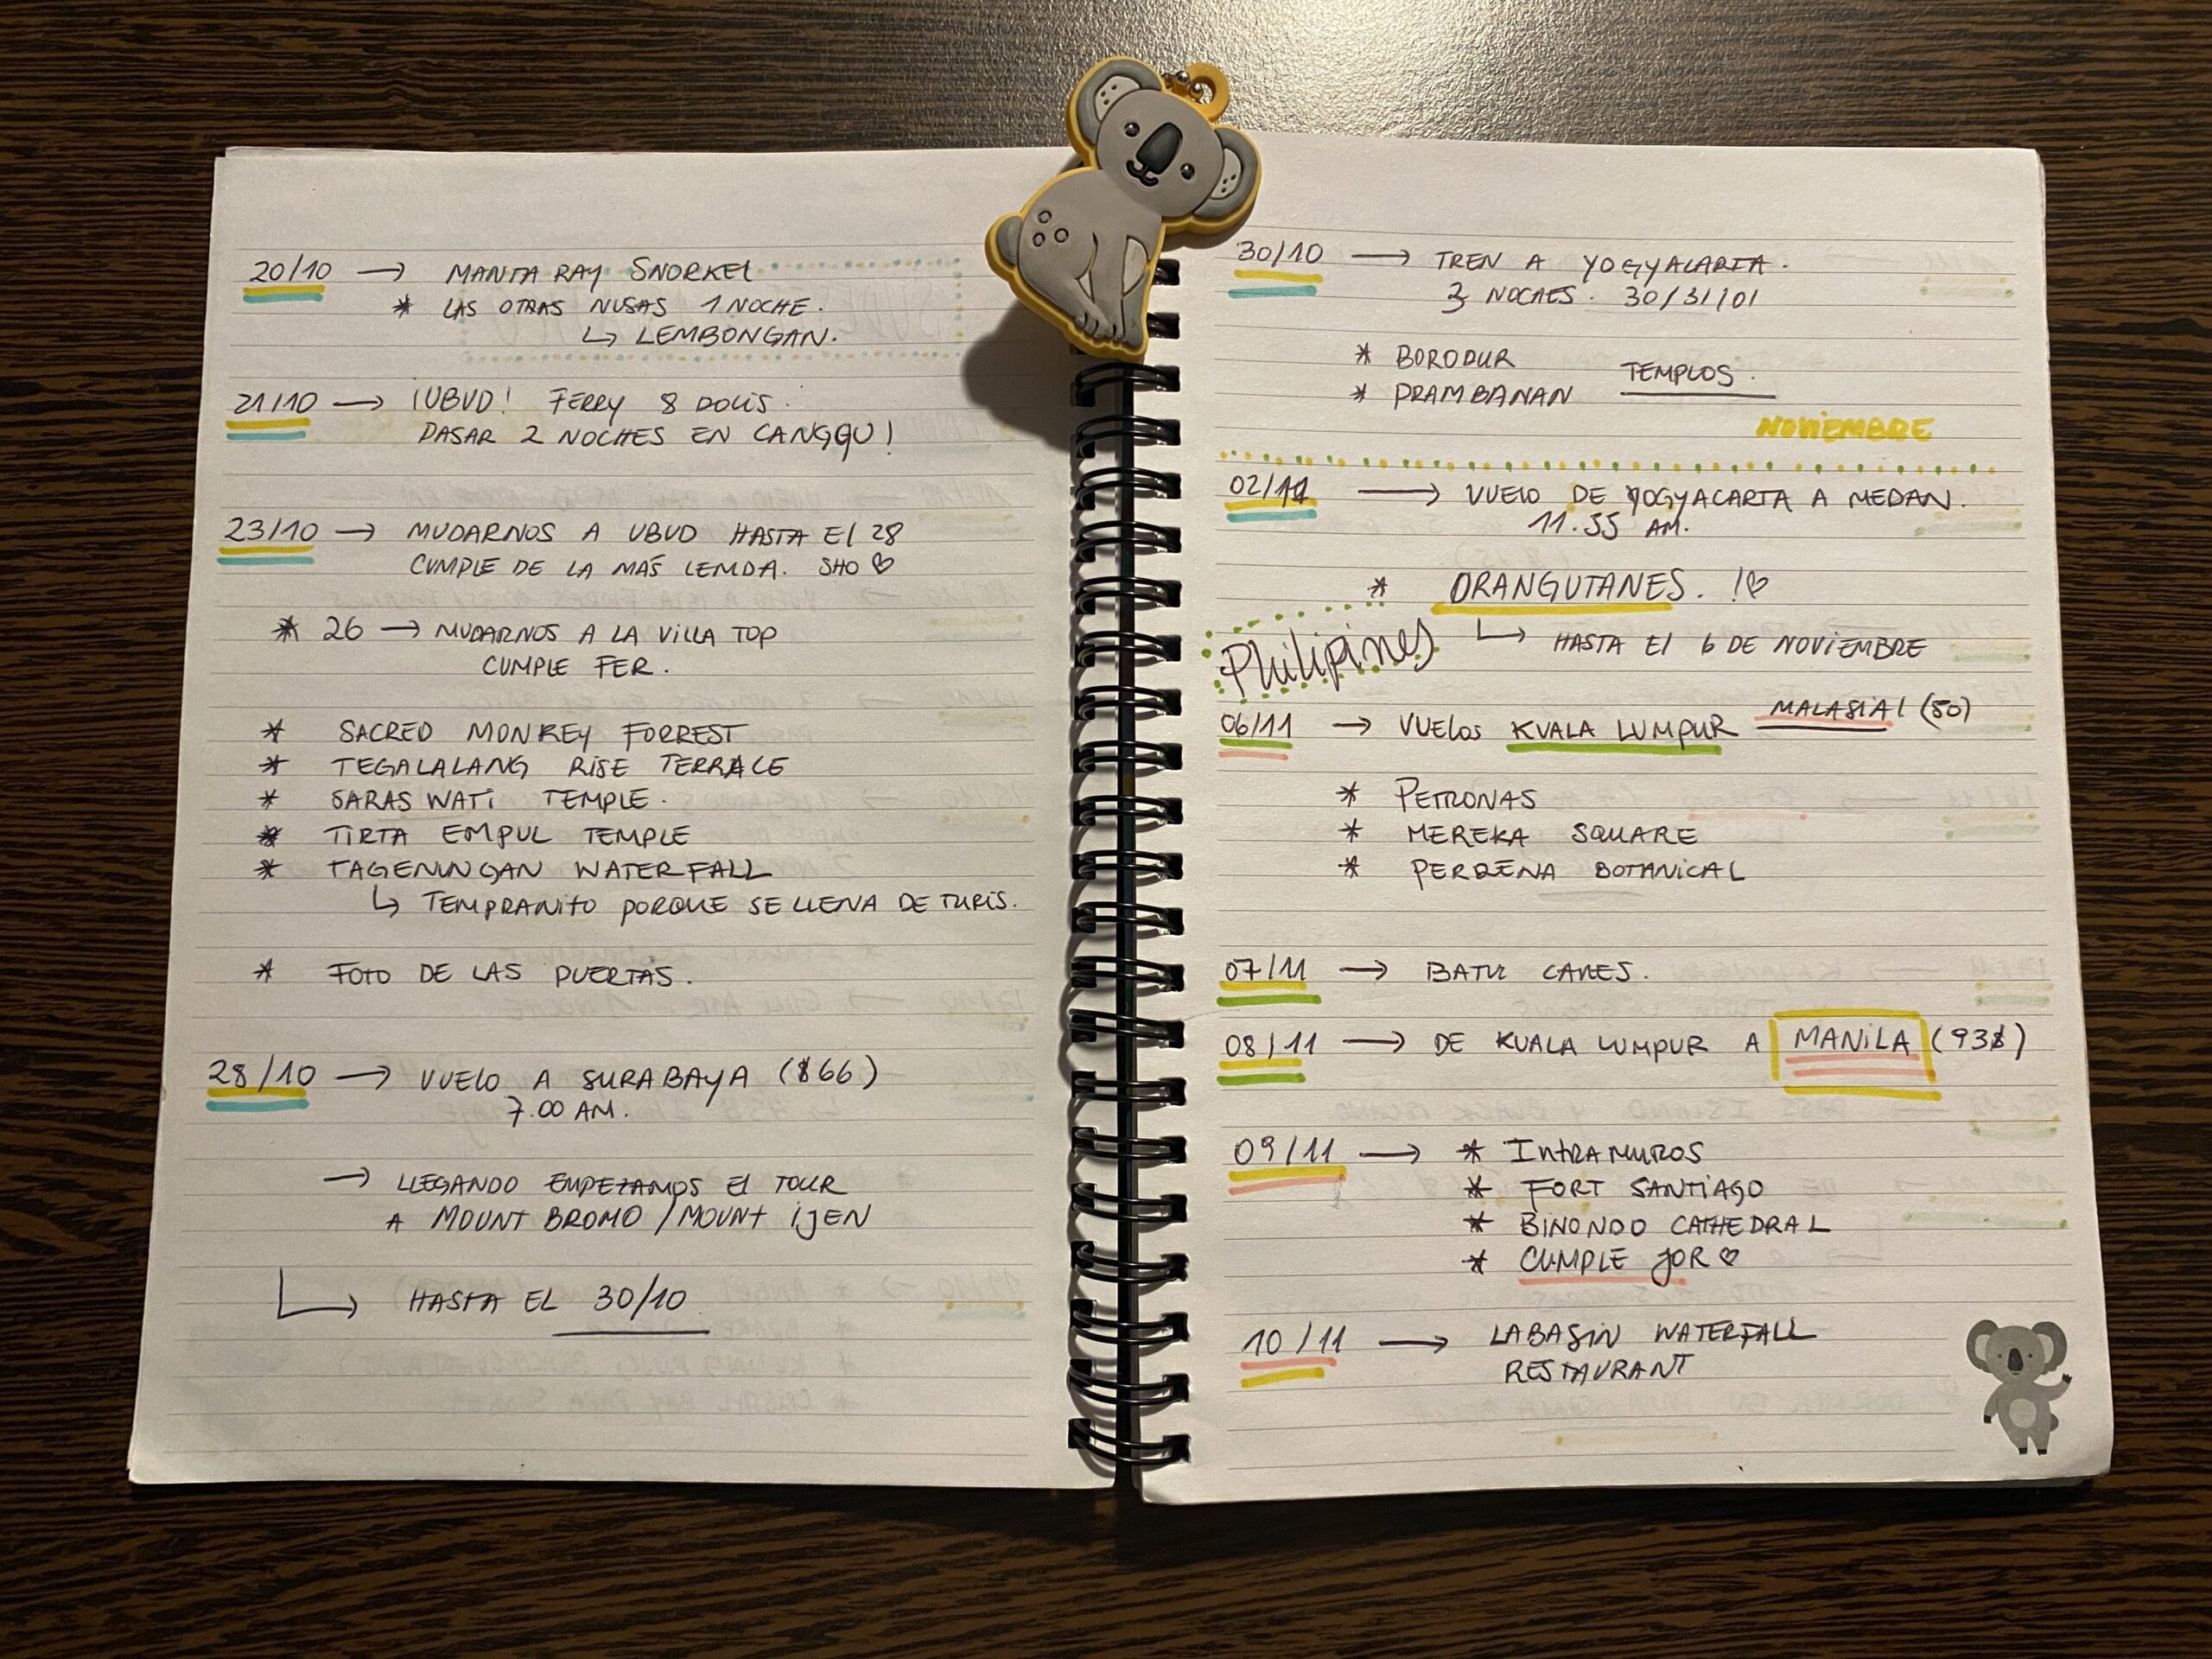 20/10 → MANTA RAY SNORKEL
* LAS OTRAS NUSAS 1 NOCHE.
↳ LEMBONGAN.
21/10 → ¡UBUD! FERRY 8 DOLIS.
PASAR 2 NOCHES EN CANGGU!
23/10 → MUDARNOS A UBUD HASTA El 28
CUMPLE DE LA MÁS LEMDA. SHO ♡
* 26 → MUDARNOS A LA VILLA TOP
CUMPLE FER.
* SACRED MONKEY FORREST
* TEGALALANG RISE TERRACE
* SARAS WATI TEMPLE.
* TIRTA EMPUL TEMPLE
* TAGENUNGAN WATERFALL
↳ TEMPRANITO PORQUE SE LLENA DE TURIS.
* FOTO DE LAS PUERTAS.
28/10 → VUELO A SURABAYA ($66)
7.00 AM.
→ LLEGANDO EMPEZAMOS El TOUR
A MOUNT BROMO / MOUNT IJEN
↳ HASTA EL 30/10
30/10 → TREN A YOGYALARTA.
3 NOCHES. 30/31/01
* BORODUR
TEMPLOS.
* PRAMBANAN
NOVIEMBRE
02/11 → VUELO DE YOGYACARTA A MEDAN.
11.55 AM.
* ORANGUTANES. !♡
↳ HASTA El 6 DE NOVIEMBRE
Philipines
06/11 → VUELOS KUALA LUMPUR MALASIA! (50)
* PETRONAS
* MEREKA SQUARE
* PERDENA BOTANICAL
07/11 → BATU CAVES.
08/11 → DE KUALA LUMPUR A MANILA (93$)
09/11 → * INTRAMUROS
* FORT SANTIAGO
* BINONDO CATHEDRAL
* CUMPLE JOR ♡
10/11 → LABASIN WATERFALL
RESTAURANT